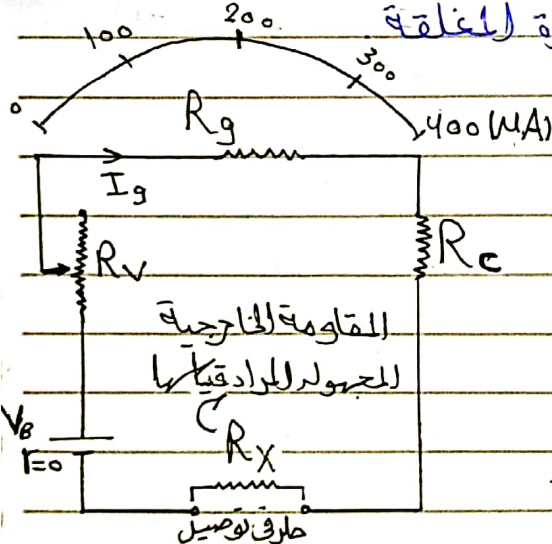 ة المغلقة
0 100 200 300 400 (MA)
Rg
Ig
Rv
Rc
المقاومة الخارجية
المجهولة المراد قياسها
VB
r=0
RX
طرفى توصيل